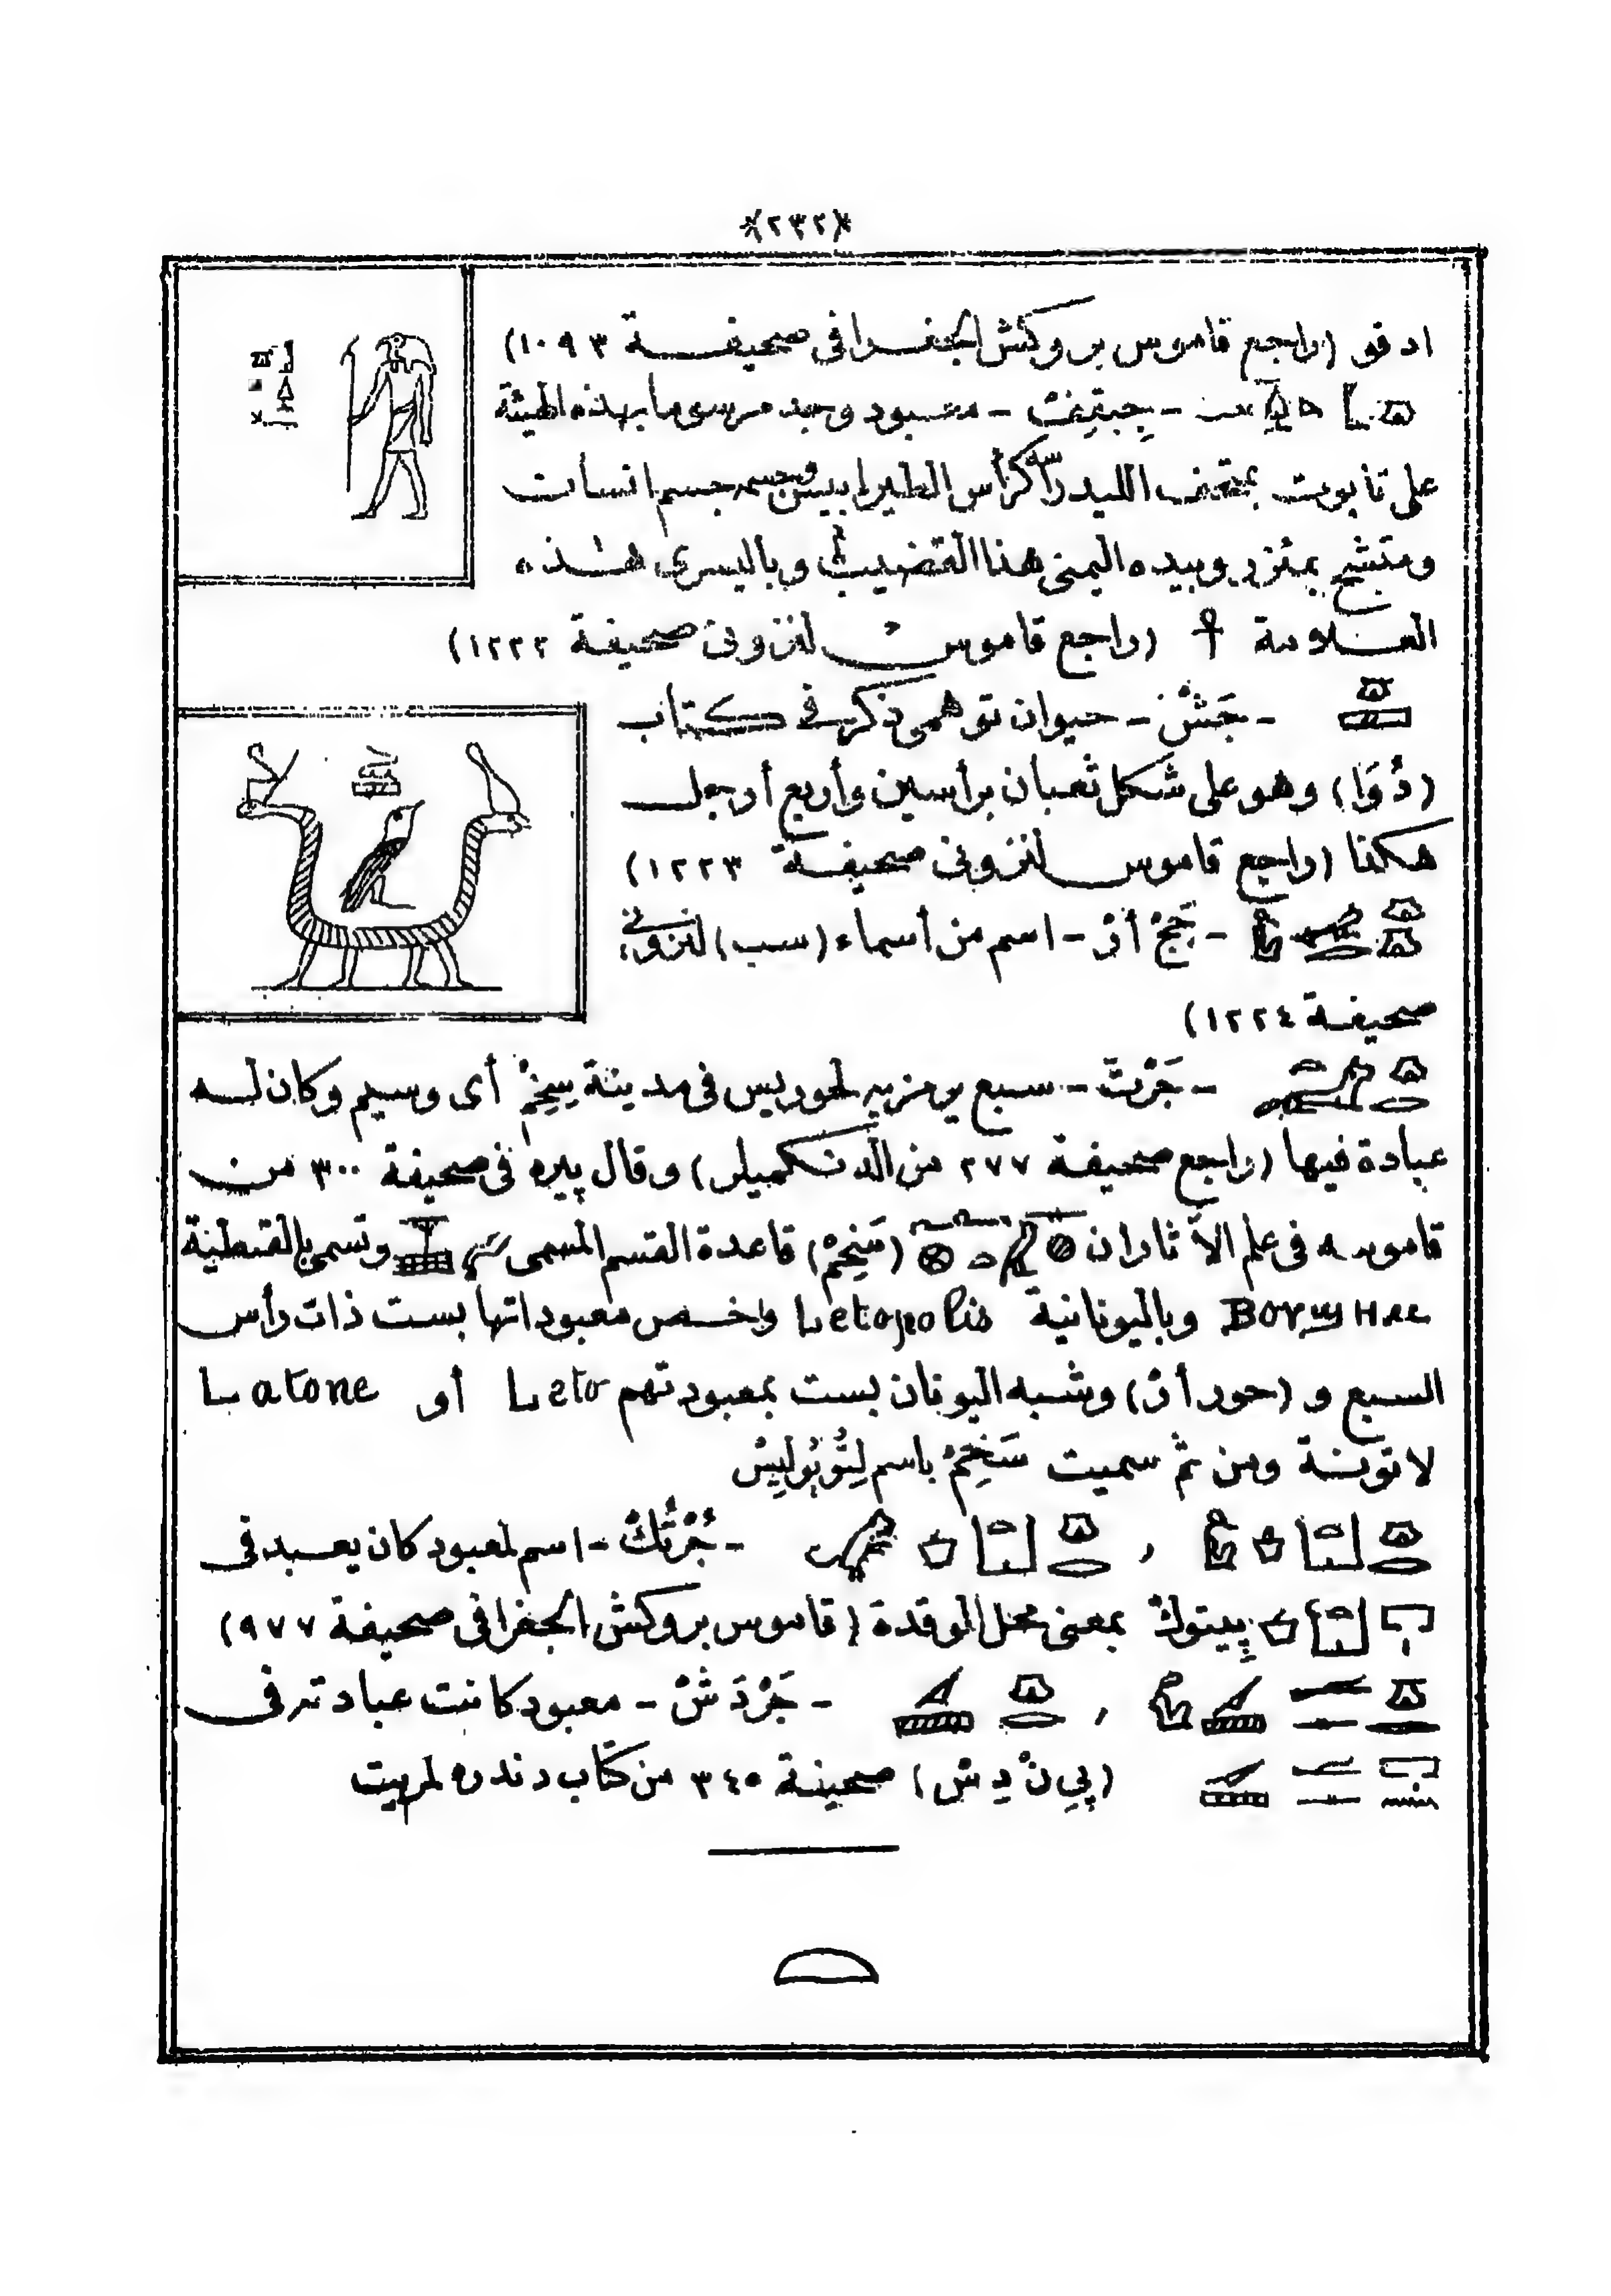 ﴿٢٣٢﴾
ادفو (راجع قاموس بروكش الجغرافى صحيفة ١٠٩٣)
- جبقنف - معبود وجد مرسوما بهذه الهيئة
على تابوت بمتحف الليد رأسه كرأس الطير ابيس وجسمه جسم انسان
ومتشح بمئزر وبيده اليمنى هذا القضيب وباليسرى هذه
العلامة ☥ (راجع قاموس لنزونى صحيفة ١٢٢٢)
- جَشْ - حيوان توهمى ذكر فى كتاب
(دُوَا) وهو على شكل ثعبان برأسين وأربع أرجل
هكذا (راجع قاموس لنزونى صحيفة ١٢٢٣)
- جَجْ أُرْ - اسم من أسماء (سب) لنزونى
صحيفة ١٢٢٤)
- جَرْتَ - سبع يرمز به لحوريس فى مدينة سِخِمْ أى وسيم وكان له
عبادة فيها (راجع صحيفة ٢٧٧ من الدنكميلر) وقال پيره فى صحيفة ٣٠٠ من
قاموسه فى علم الآثار ان (سَخِمْ) قاعدة القسم المسمى وتسمى بالقبطية
ⲂⲞⲨϢⲎⲘ وباليونانية Letopolis واخص معبوداتها بست ذات رأس
السبع و (حور أر) وشبه اليونان بست بمعبودتهم Leto أو Latone
لاتونة ومن ثم سميت سَخِمْ باسم لِتُوپُولِيسْ
، - جُرْتُكْ - اسم لمعبود كان يعبد فى
پيتوك بمعنى محل الموقدة (قاموس بروكش الجغرافى صحيفة ٩٧٧)
، - جَرْدَشْ - معبود كانت عبادته فى
(پِى نْ دِ شْ) صحيفة ٣٤٥ من كتاب دندره لمريت